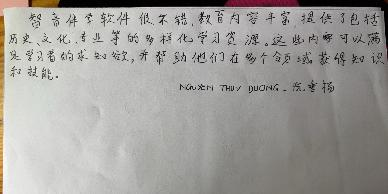 智音伴学软件很不错,教育内容丰富,提供了包括
历史、文化、专业等的多样化学习资源。这些内容可以满
足学习者的求知欲,并帮助他们在多个领域获得知识
和技能。
NGUYEN THUY DUONG - 阮垂杨